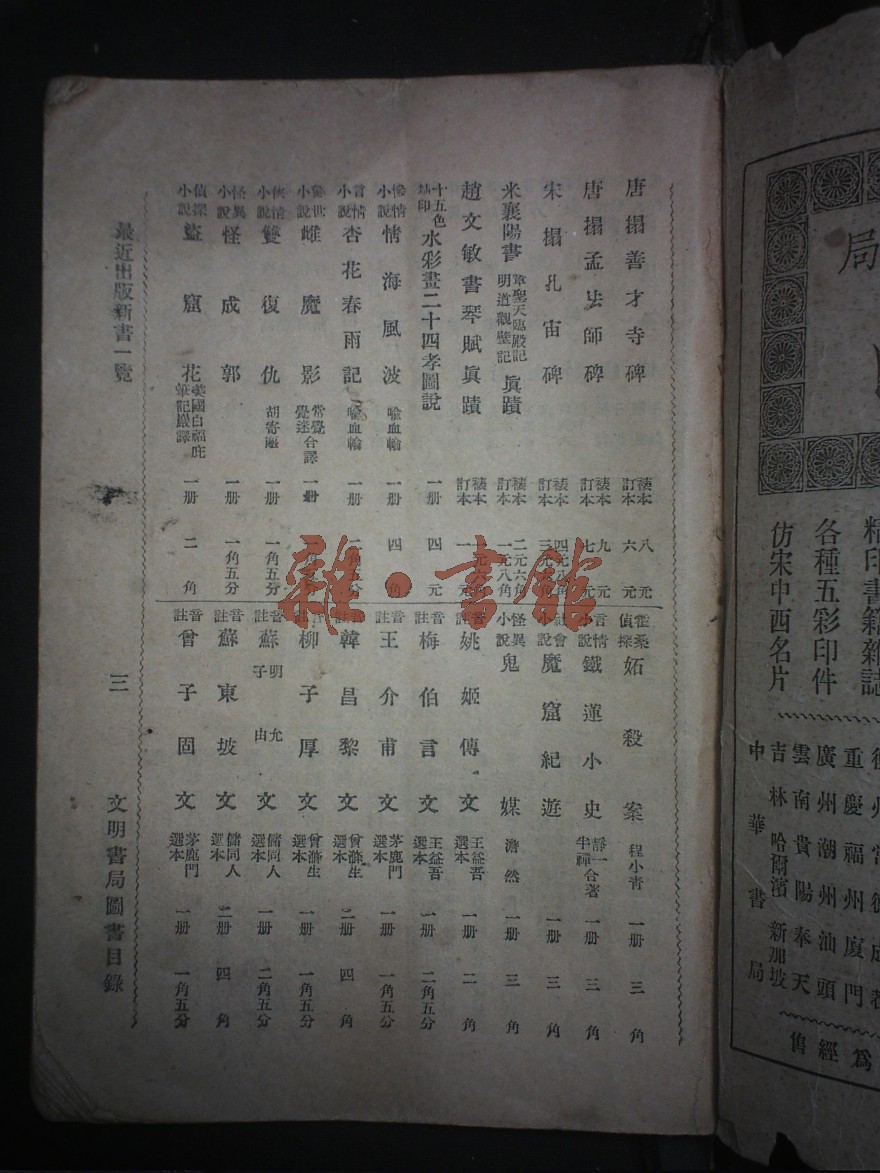 唐搨善才寺碑 裱本 八元 訂本 六元
唐搨孟法師碑 裱本 九元 訂本 七元
宋搨孔宙碑 裱本 訂本
米襄陽書 章聖天臨殿記 明道觀壁記 真蹟 裱本 二元六角 訂本 一元八角
趙文敏書琴賦真蹟 裱本 訂本
十五色 水彩畫二十四孝圖說 一册 四元
慘情小說 情海風波 喻血輪 一册 四角
言情小說 杏花春雨記 喻血輪 一册
小說 雌魔影 常覺 覺迷 合譯 一册
俠情小說 雙復仇 胡寄塵 一册 一角五分
怪異小說 怪成郭 一册 一角五分
偵探小說 盜窟花 英國白福庇筆記嚴譯 一册 二角
霍桑偵探 妬殺案 程小青 一册 三角
言情小說 鐵蓮小史 靜一 半禪 合著 一册 三角
社會小說 魔窟紀遊 一册 三角
怪異小說 鬼媒 澹然 一册 三角
音註 姚姬傳文 王益吾選本 一册 二角
音註 梅伯言文 王益吾選本 一册 二角五分
音註 王介甫文 茅鹿門選本 一册 一角五分
音註 韓昌黎文 曾滌生選本 二册 四角
音註 柳子厚文 曾滌生選本 一册 一角五分
音註 蘇明允 子由 文 儲同人選本 一册 二角五分
音註 蘇東坡文 儲同人選本 二册 四角
音註 曾子固文 茅鹿門選本 一册 一角五分
最近出版新書一覽 三 文明書局圖書目錄
雜·書館
局
精印書籍雜誌
各種五彩印件
仿宋中西名片
重慶 福州 廈門
廣州 潮州 汕頭
雲南 貴陽 奉天
吉林 哈爾濱 新加坡
中華書局
爲經售